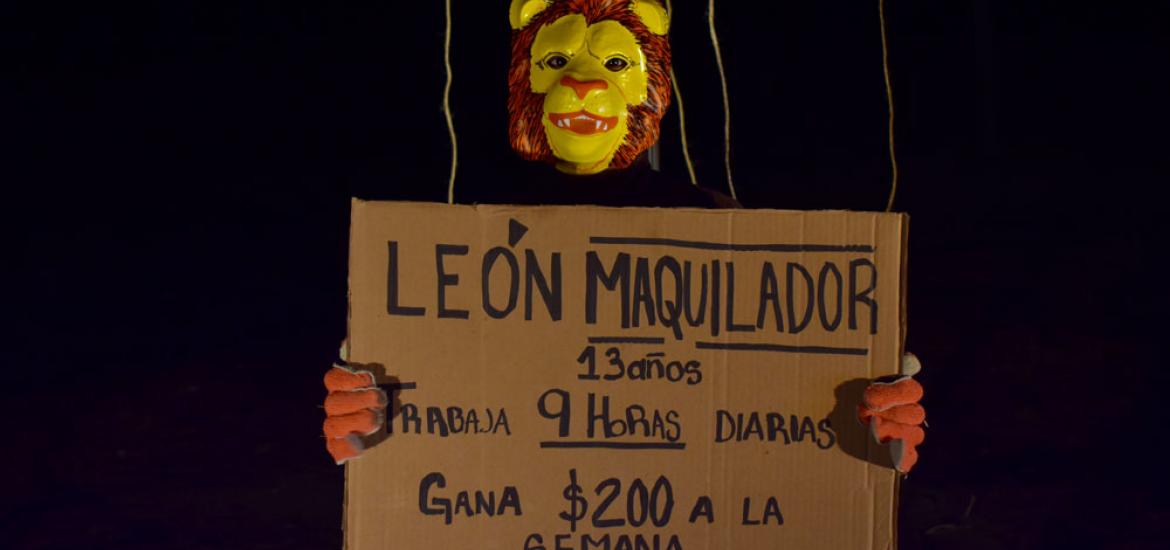 LEÓN MAQUILADOR
13 años
TRABAJA 9 HORAS DIARIAS
GANA $200 A LA
SEMANA